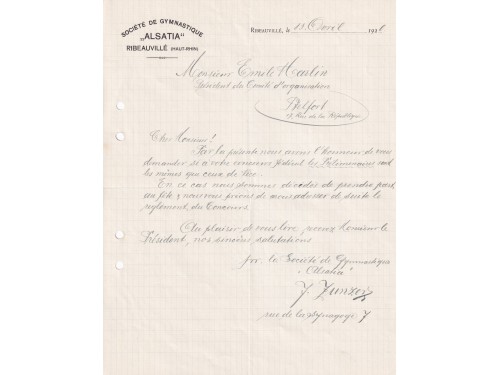 SOCIÉTÉ DE GYMNASTIQUE
„ALSATIA“
RIBEAUVILLÉ (HAUT-RHIN)
RIBEAUVILLÉ, le 18 avril 192
Monsieur Emile Haslin
Président du Comité d'organisation
Belfort
Rue de la République
Cher Monsieur!
Par la présente nous avons l'honneur de vous
demander si à votre concours fédéral les Préliminaires sont
les mêmes que ceux de
En ce cas nous sommes décidés de prendre part
au fête & nous vous prions de nous adresser de suite le
règlement du Concours.
Au plaisir de vous lire, Monsieur le
Président, nos sincères salutations
for. la Société de Gymnastique
„Alsatia“
J.
rue de la Synagoge 7